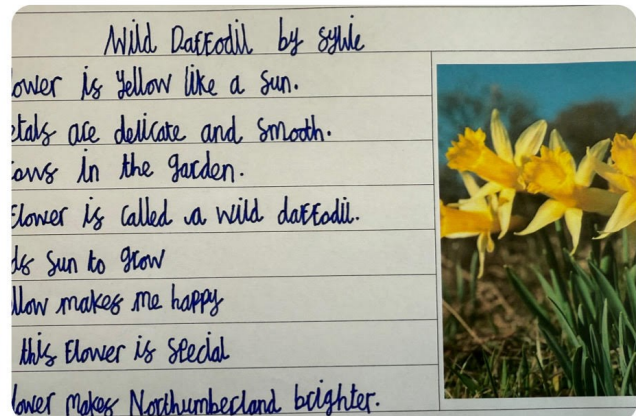 Wild Daffodil by Sylvie
lower is yellow like a sun.
etals are delicate and smooth.
ows in the garden.
flower is called a wild daffodil.
ds sun to grow
llow makes me happy
this flower is special
lower makes Northumberland brighter.